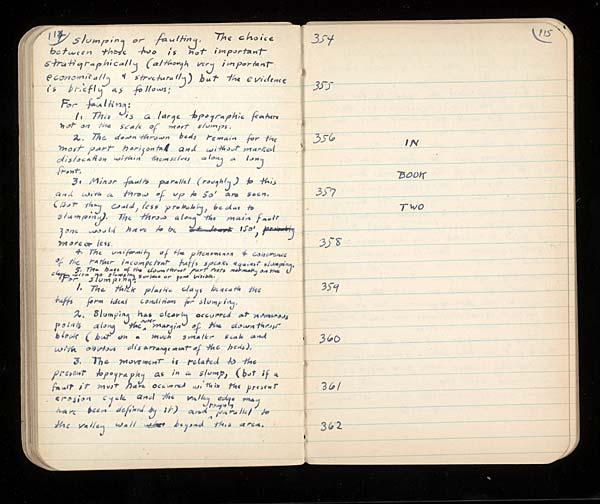 114
slumping or faulting. The choice
between those two is not important
stratigraphically (although very important
economically & structurally) but the evidence
is briefly as follows:
For faulting:
1. This is a large topographic feature
not on the scale of most slumps.
2. The downthrown beds remain for the
most part horizontal and without marked
dislocation within themselves along a long
front.
3. Minor faults parallel (roughly) to this
and with a throw of up to 50' are seen.
(But they could, less probably, be due to
slumping). The throw along the main fault
zone would have to be at least 150', probably
more or less.
4. The uniformity of the phenomena & coherence
of the rather incompetent tuffs speaks against slumping.
5. The base of the downthrust part rests normally on the
clays with no slumping surface or gouge visible.
For slumping:
1. The thick plastic clays beneath the
tuffs form ideal conditions for slumping.
2. Slumping has clearly occurred at numerous
points along the outer margin of the downthrust
block (but on a much smaller scale and
with obvious disarrangement of the beds).
3. The movement is related to the
present topography as in a slump, (but if a
fault it must have occured within the present
erosion cycle and the valley edge may
have been defined by it) and roughly parallel to
the valley wall beyond this area.
115
354
355
356
IN
BOOK
357
TWO
358
359
360
361
362